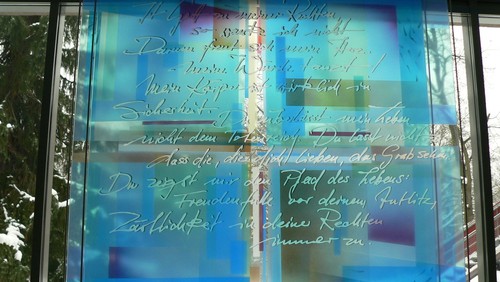 zu meiner Rechten
so wanke ich nicht
Darum freut sich mein Herz
meine Würde jauchzt auf!
Mein Körper ist wirklich in
Sicherheit. überlässt mein Leben
nicht dem Totenreich. Du lässt nicht zu
dass die, die dich lieben, das Grab sehen,
Du zeigst mir den Pfad des Lebens:
Freudenfülle vor deinem Antlitz,
Zärtlichkeit in deiner Rechten
immerzu.